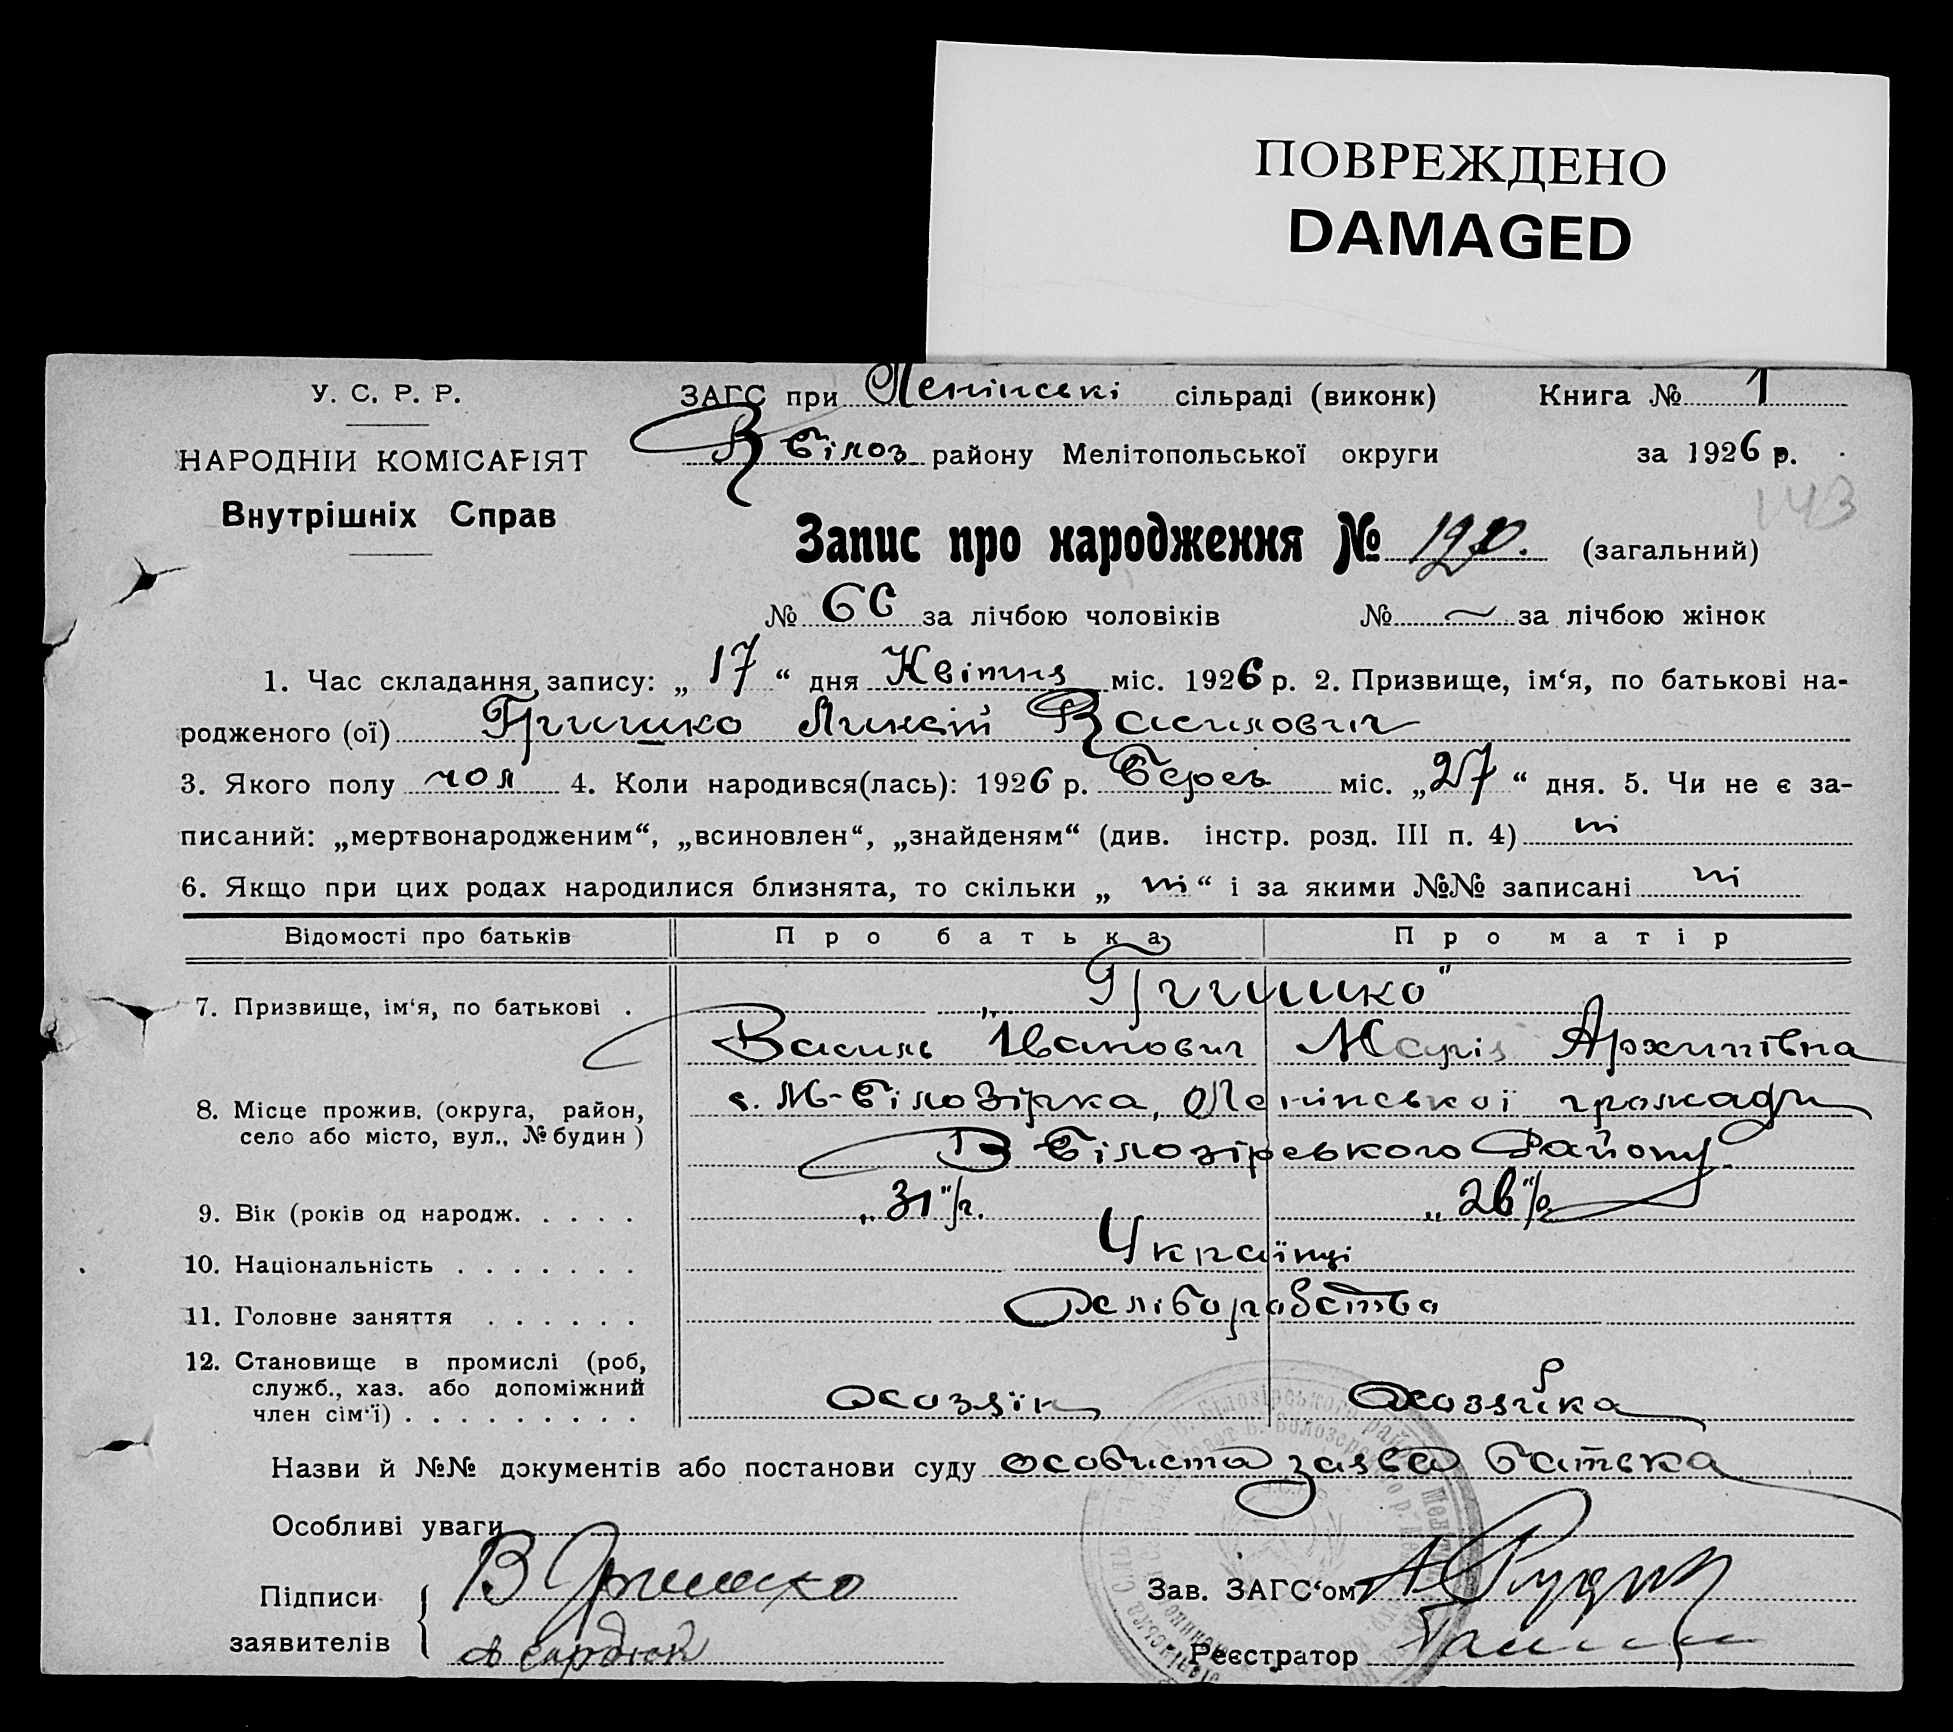 ПОВРЕЖДЕНО
DAMAGED
У. С. Р. Р.
НАРОДНІЙ КОМІСАРІЯТ
Внутрішніх Справ
ЗАГС при Ленінські сільраді (виконк) Книга № 1
В Білоз району Мелітопольської округи за 1926 р.
143
Запис про народження № (загальний)
№ 66 за лічбою чоловіків № — за лічбою жінок
1. Час складання запису: „17“ дня Квітня міс. 1926 р. 2. Призвище, ім‘я, по батькові на-
родженого (ої) Гришко Василович
3. Якого полу чол 4. Коли народився(лась): 1926 р. Берез міс. „27“ дня. 5. Чи не є за-
писаний: „мертвонародженим“, „всиновлен“, „знайденям“ (див. інстр. розд. III п. 4) ні
6. Якщо при цих родах народилися близнята, то скільки „ні“ і за якими №№ записані ні
Відомості про батьків Про батька Про матір
7. Призвище, ім‘я, по батькові . „Гришко“
Василь Іванович Марія Архипівна
8. Місце прожив. (округа, район, с. М-Білозірка, Ленінської громади
село або місто, вул., № будин) В Білозірського Району.
9. Вік (років од народж. . . . . „31“ р. „26“ р.
10. Національність . . . . . . . Українці
11. Головне заняття . . . . . . Хліборобство
12. Становище в промислі (роб,
служб., хаз. або допоміжний
член сім‘ї) . . . . . . . . . Хозяїн Хозяйка
Назви й №№ документів або постанови суду особиста заява батька
Особливі уваги
Підписи В Гришко Зав. ЗАГС‘ом
заявителів Реєстратор